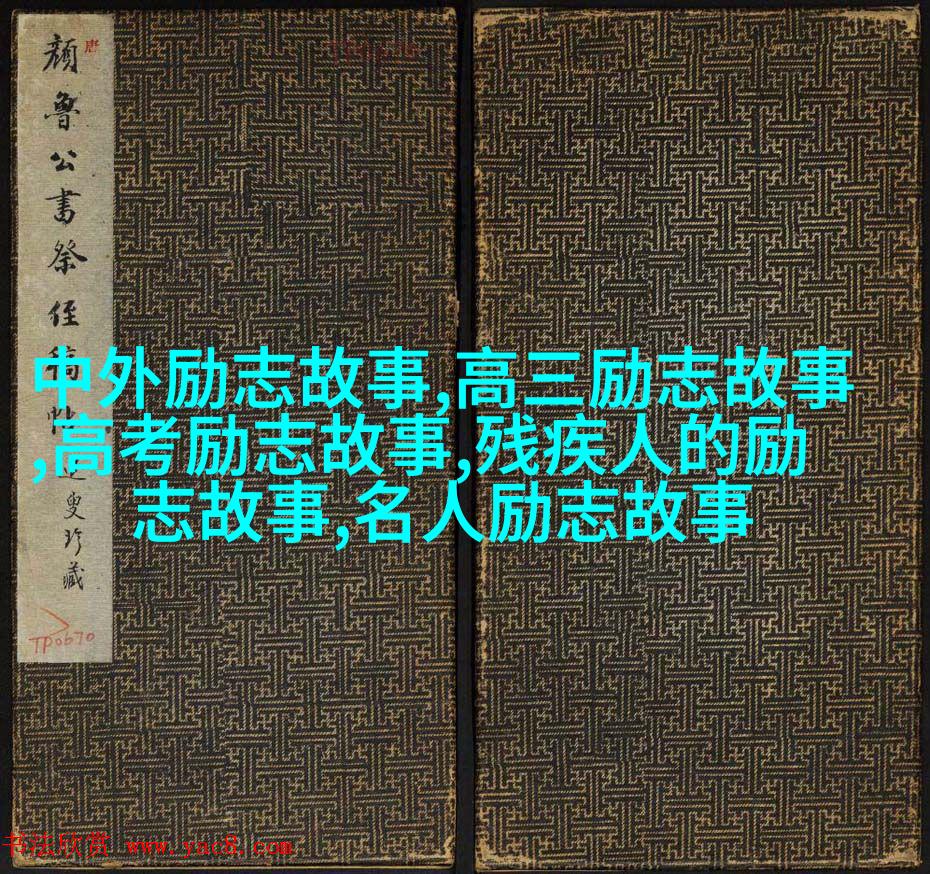 唐
颜鲁公书祭侄稿
叟珍藏
TP0670
中外励志故事,高三励志故事
,高考励志故事,残疾人的励
志故事,名人励志故事
书法欣赏 www.yac8.com